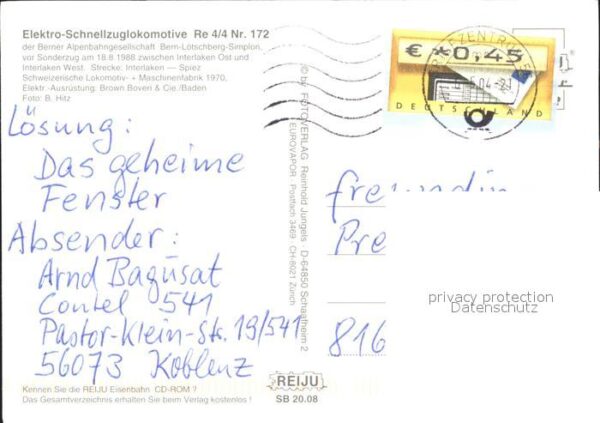 Elektro-Schnellzuglokomotive Re 4/4 Nr. 172
der Berner Alpenbahngesellschaft Bern-Lötschberg-Simplon,
vor Sonderzug am 18.8.1986 zwischen Interlaken Ost und
Interlaken West. Strecke: Interlaken — Spiez
Schweizerische Lokomotiv- + Maschinenfabrik 1970,
Elektr.-Ausrüstung: Brown Boveri & Cie./Baden
Foto: B. Hitz
Lösung:
Das geheime
Fenster
Absender:
Arnd Bagusat
Contel 541
Pastor-Klein-Str. 19/541
56073 Koblenz
Kennen Sie die REIJU Eisenbahn CD-ROM ?
Das Gesamtverzeichnis erhalten Sie beim Verlag kostenlos !
© by FOTOVERLAG Reinhold Jungels · D-64850 Schaafheim 2
EUROVAPOR · Postfach 3469 CH-8021 Zürich
REIJU
SB 20.08
BRIEFZENTRUM
04-21
€ *0,45
DEUTSCHLAND
freundin
Pre
816
privacy protection
Datenschutz